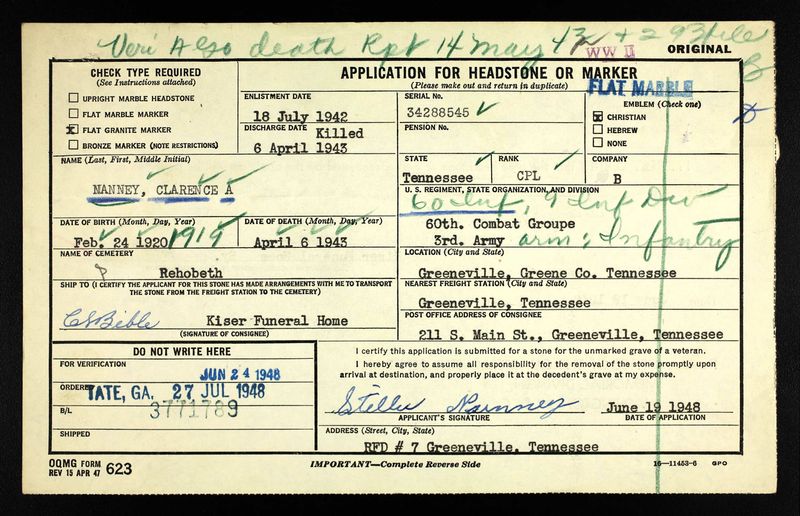 Veri Ago death Rpt 14 May 43
WW II
ORIGINAL
CHECK TYPE REQUIRED
(See Instructions attached)
☐ UPRIGHT MARBLE HEADSTONE
☐ FLAT MARBLE MARKER
☒ FLAT GRANITE MARKER
☐ BRONZE MARKER (NOTE RESTRICTIONS)
APPLICATION FOR HEADSTONE OR MARKER
(Please make out and return in duplicate)
FLAT MARBLE
ENLISTMENT DATE
18 July 1942
DISCHARGE DATE Killed
6 April 1943
SERIAL No.
34288545 ✓
PENSION No.
EMBLEM (Check one)
☒ CHRISTIAN
☐ HEBREW
☐ NONE
NAME (Last, First, Middle Initial)
NANNEY, CLARENCE A
STATE
Tennessee
RANK
CPL
COMPANY
B
U. S. REGIMENT, STATE ORGANIZATION, AND DIVISION
60 Inf, 9 Inf Div
60th. Combat Groupe
3rd. Army arm: Infantry
DATE OF BIRTH (Month, Day, Year)
Feb. 24 1920 1919
DATE OF DEATH (Month, Day, Year)
April 6 1943
NAME OF CEMETERY
Rehobeth
LOCATION (City and State)
Greeneville, Greene Co. Tennessee
SHIP TO (I CERTIFY THE APPLICANT FOR THIS STONE HAS MADE ARRANGEMENTS WITH ME TO TRANSPORT
THE STONE FROM THE FREIGHT STATION TO THE CEMETERY)
CSBible Kiser Funeral Home
(SIGNATURE OF CONSIGNEE)
NEAREST FREIGHT STATION (City and State)
Greeneville, Tennessee
POST OFFICE ADDRESS OF CONSIGNEE
211 S. Main St., Greeneville, Tennessee
DO NOT WRITE HERE
FOR VERIFICATION
JUN 24 1948
ORDERED
TATE, GA. 27 JUL 1948
B/L
3771789
SHIPPED
I certify this application is submitted for a stone for the unmarked grave of a veteran.
I hereby agree to assume all responsibility for the removal of the stone promptly upon
arrival at destination, and properly place it at the decedent's grave at my expense.
Stella Nanney June 19 1948
APPLICANT'S SIGNATURE DATE OF APPLICATION
ADDRESS (Street, City, State)
RFD # 7 Greeneville. Tennessee
OQMG FORM
REV 15 APR 47 623
IMPORTANT—Complete Reverse Side
16—11453-6 GPO